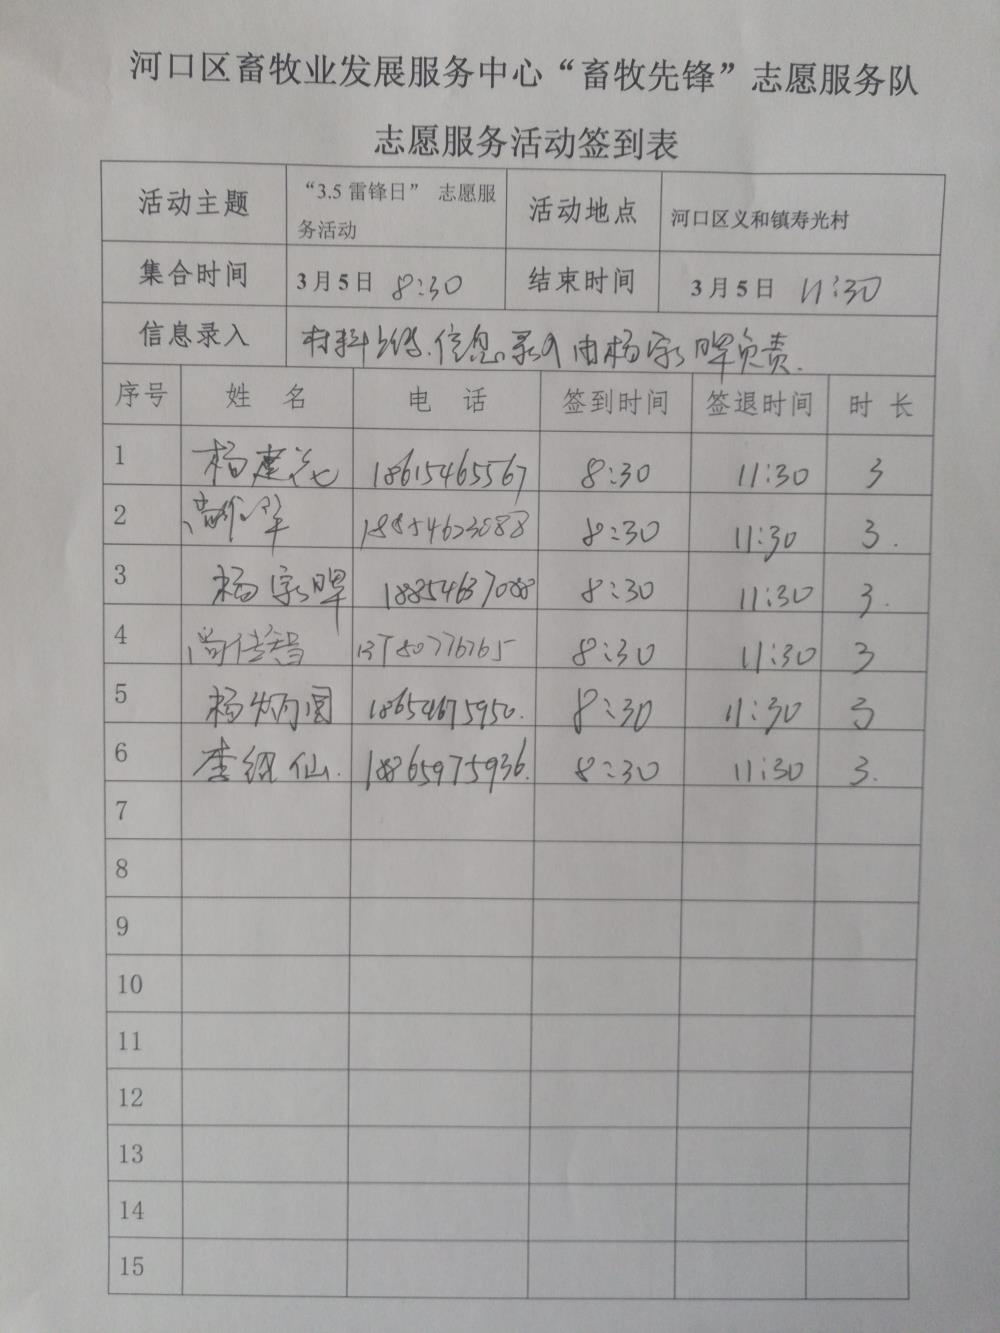 河口区畜牧业发展服务中心“畜牧先锋”志愿服务队
志愿服务活动签到表
活动主题 “3.5 雷锋日” 志愿服务活动 活动地点 河口区义和镇寿光村
集合时间 3月5日 8:30 结束时间 3月5日 11:30
信息录入 材料上传.信息录入由杨家晖负责.
序号 姓 名 电 话 签到时间 签退时间 时 长
1 杨建 18615465567 8:30 11:30 3
2 8:30 11:30 3.
3 杨家晖 18854637088 8:30 11:30 3.
4 尚佳智 8:30 11:30 3
5 杨炳圆 18654675950. 8:30 11:30 3
6 李 仙. 18865975936. 8:30 11:30 3.
7
8
9
10
11
12
13
14
15